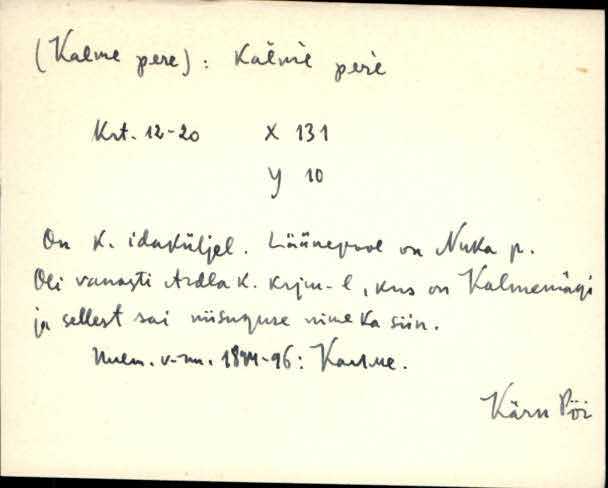 (Kalme pere): kälmè perè
Krt. 12-20 X 131
Y 10
On k. idaküljel. Läänepool on Nuka p.
Oli vanasti Ardla k. krjm-l, kus on Kalmemägi
ja sellest sai niisuguse nime ka siin.
v-nn. -96: Kalme.
Kärn Pöi